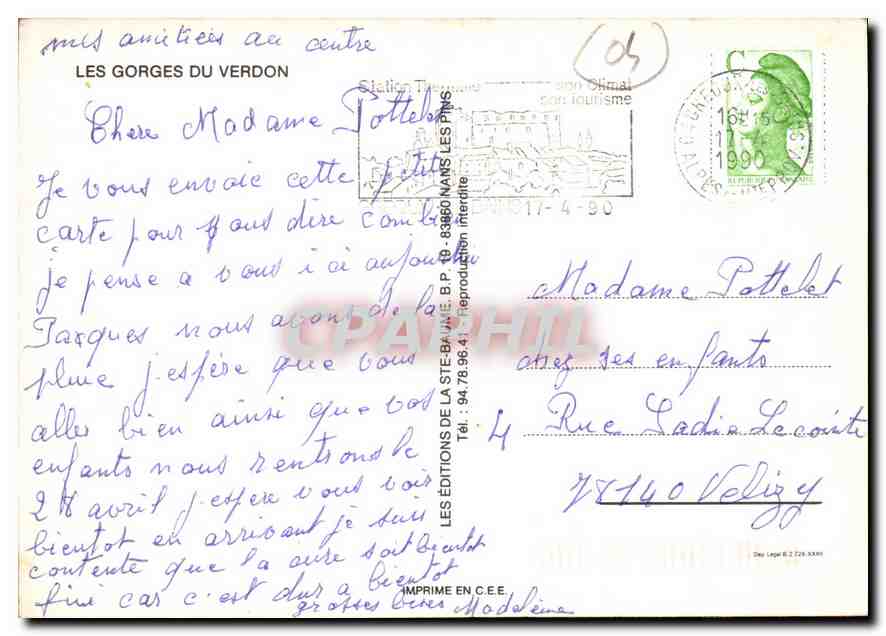 mes amitiées au centre
LES GORGES DU VERDON
Chere Madame Pottelet
Je vous envoie cette petite
carte pour vous dire combien
je pense a vous ici aujourdhui
Parques nous avons de la
pluie j espére que vous
aller bien ainsi que vos
enfants nous rentrons le
28 avril j espere vous voir
bientot en arrivant je suis
contente que la cure soit bientot
fini car c'est dur a bientot
grosses bises Madeleine
LES ÉDITIONS DE LA STE-BAUME, B.P. 19 - 83860 NANS LES PINS
Tél. : 94.78.96.41 Reproduction interdite
IMPRIME EN C.E.E.
04
Station Thermale
son Climat
son Tourisme
17-4-90
16H15
1990
Madame Pottelet
chez ses enfants
4 Rue Sadie Lecointe
78140 Velizy
Dep. Legal B.2.724-XXXII
CPAPHIL